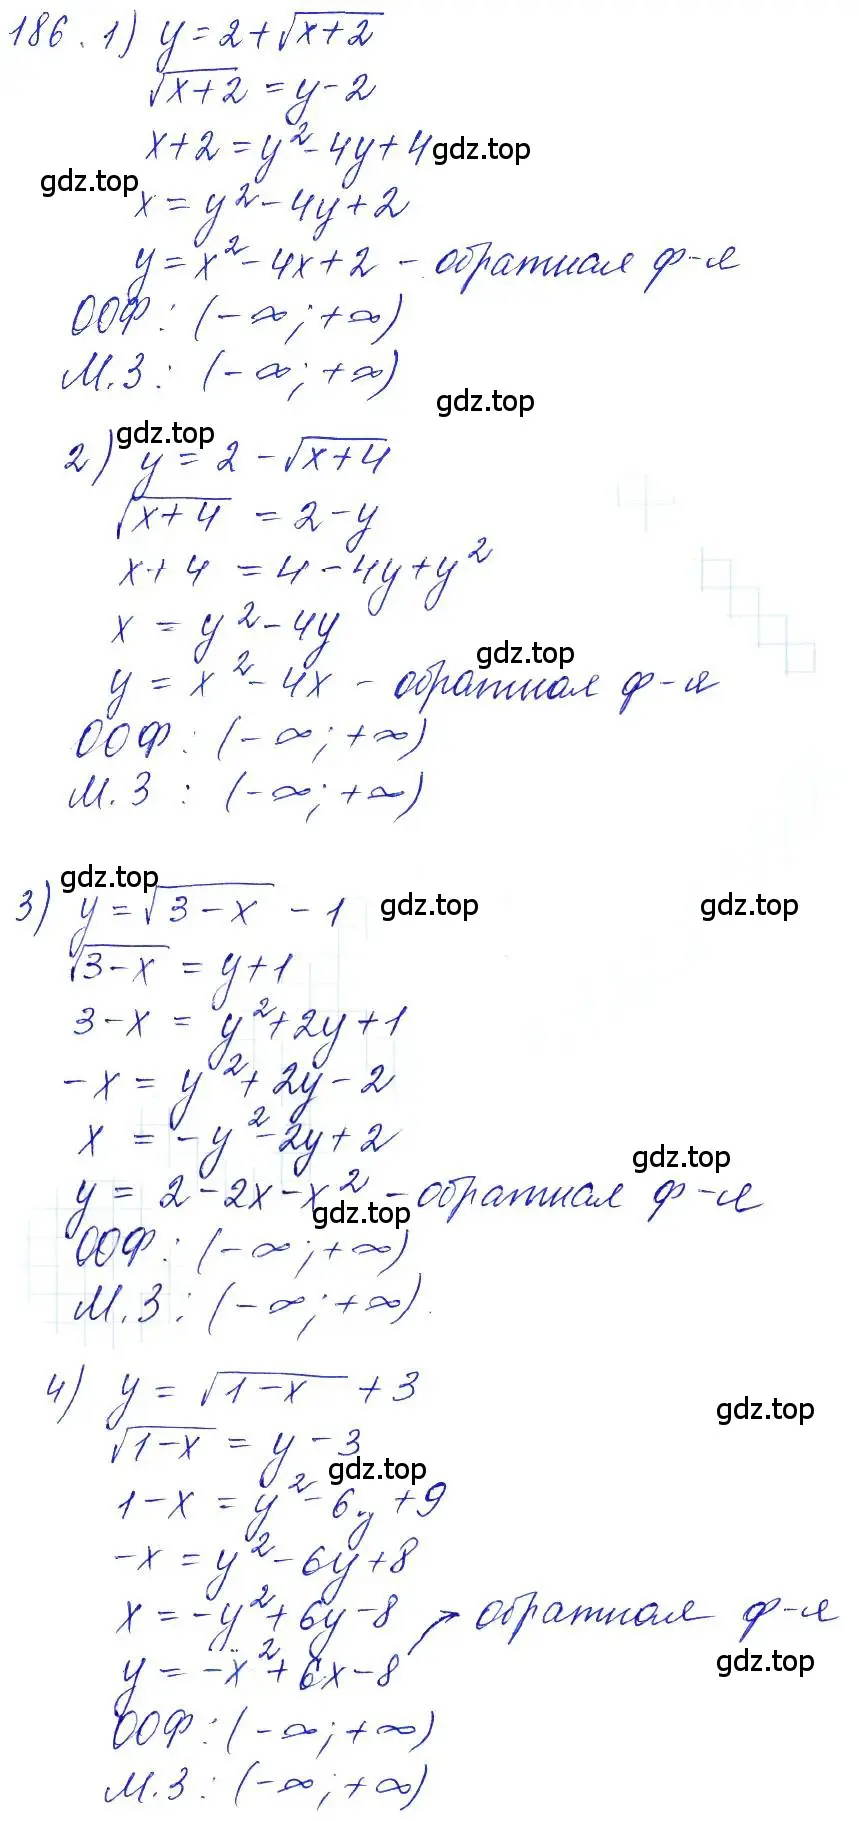 186. 1) y = 2 + √(x+2)
√(x+2) = y - 2
x + 2 = y² - 4y + 4 gdz.top
gdz.top
x = y² - 4y + 2
y = x² - 4x + 2 - обратная ф-я
ООФ: (-∞; +∞)
М.З: (-∞; +∞)
gdz.top
gdz.top
2) y = 2 - √(x+4)
√(x+4) = 2 - y
x + 4 = 4 - 4y + y²
x = y² - 4y
gdz.top
y = x² - 4x - обратная ф-я
ООФ: (-∞; +∞)
М.З: (-∞; +∞)
gdz.top
3) y = √(3-x) - 1 gdz.top gdz.top
√(3-x) = y + 1
3 - x = y² + 2y + 1
-x = y² + 2y - 2
x = -y² - 2y + 2
gdz.top
y = 2 - 2x - x² - обратная ф-я
gdz.top
ООФ: (-∞; +∞)
М.З: (-∞; +∞)
4) y = √(1-x) + 3
gdz.top
√(1-x) = y - 3
gdz.top
1 - x = y² - 6y + 9
-x = y² - 6y + 8
x = -y² + 6y - 8 → обратная ф-я
y = -x² + 6x - 8 gdz.top
ООФ: (-∞; +∞)
М.З: (-∞; +∞)